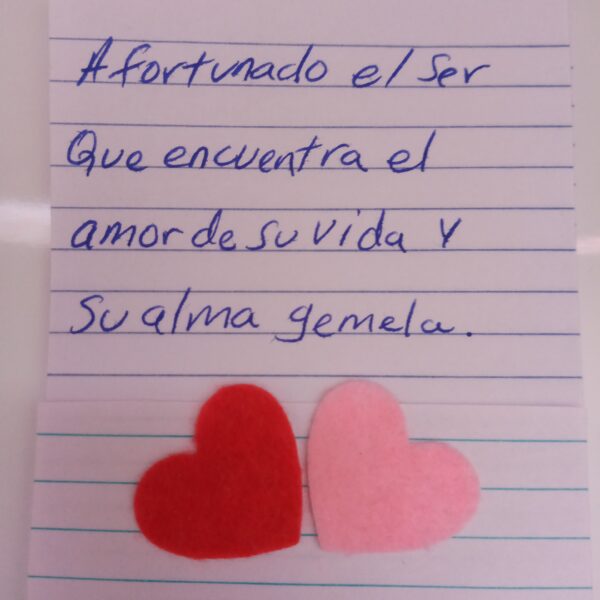 Afortunado el ser
Que encuentra el
amor de su vida y
Su alma gemela.